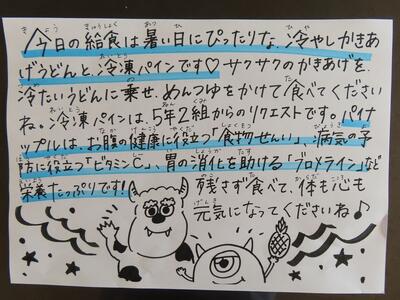 今日の給食は暑い日にぴったりな、冷やしかきあ
げうどんと、冷凍パインです♡ サクサクのかきあげを、
冷たいうどんに乗せ、めんつゆをかけて食べてください
ね。冷凍パインは、5年2組からのリクエストです。パイナ
ップルは、お腹の健康に役立つ「食物せんい」、病気の予
防に役立つ「ビタミンC」、胃の消化を助ける「ブロメライン」など
栄養たっぷりです! 残さず食べて、体も心も
元気になってくださいね♪